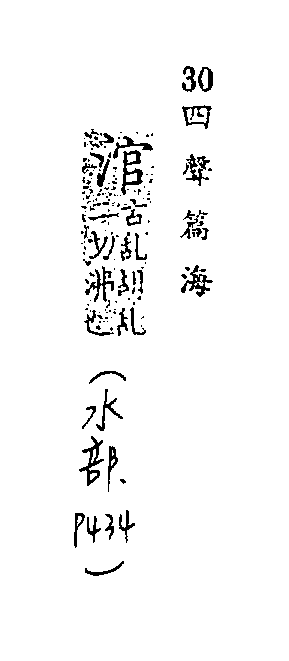 30四聲篇海
涫古乱胡乱
二切沸也
(水部、P434)